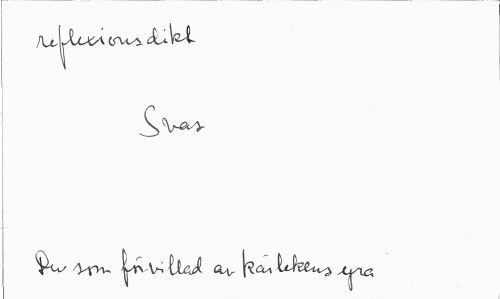 reflexionsdikt
Svar
Du som förvillad av kärlekens yra